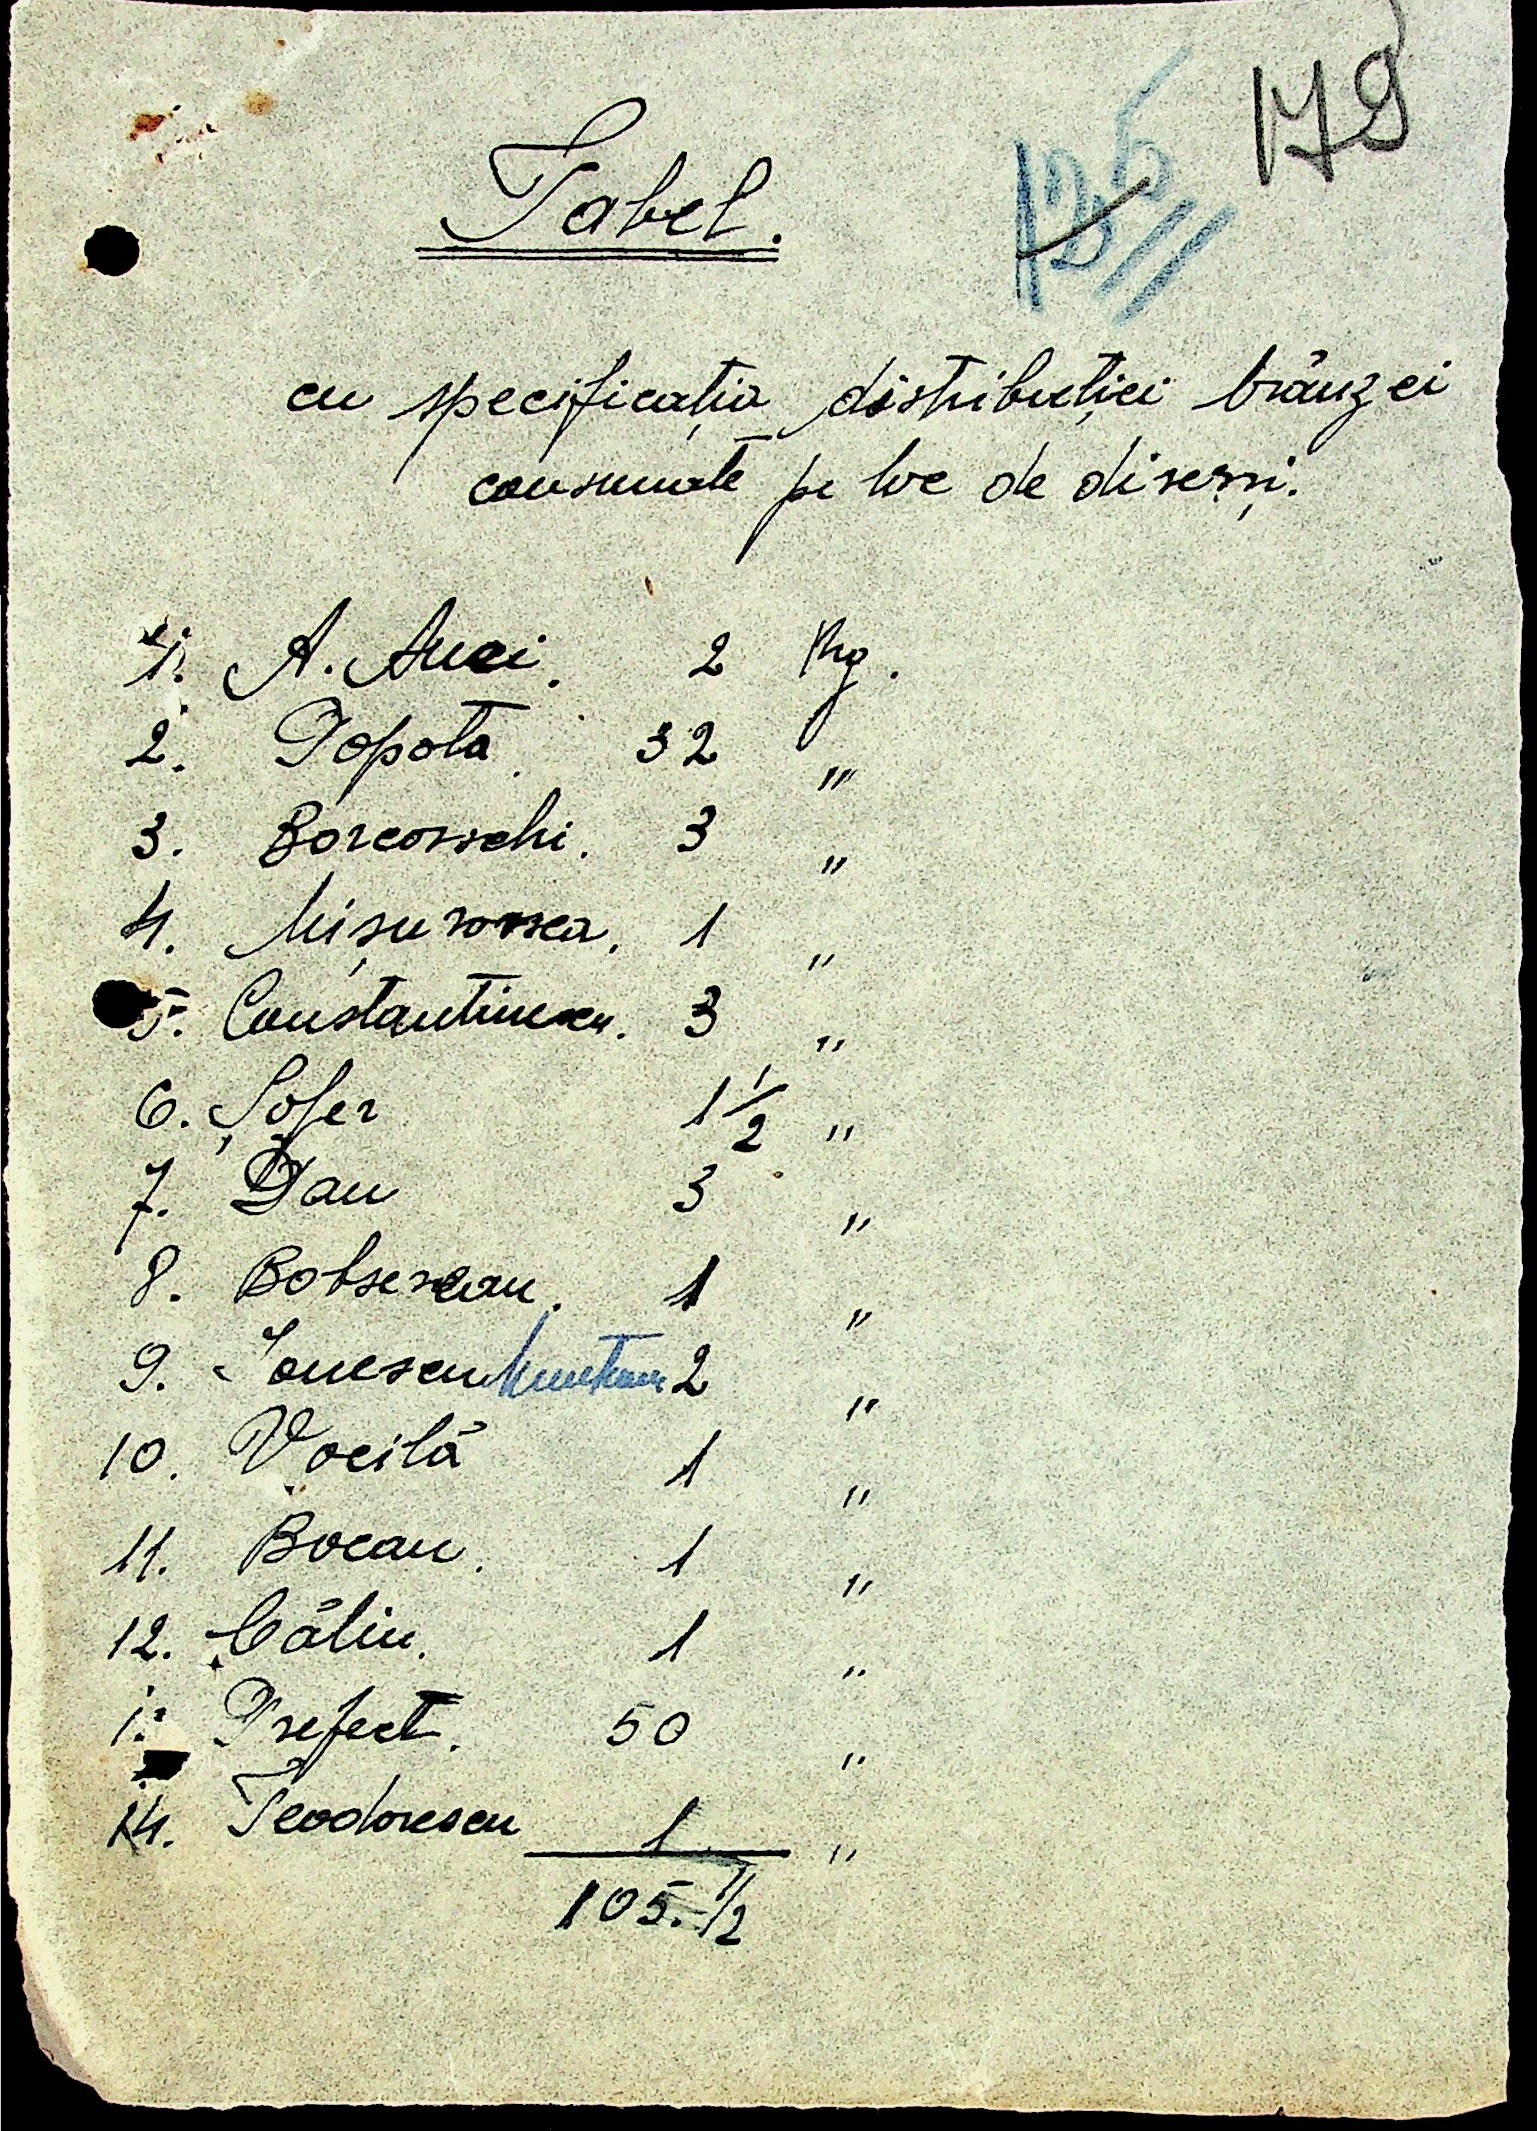 179
Tabel.
cu specificația distribuției brânzei
consumate pe loc de diserși.
1. A. Auei. 2 Kg.
2. Popota. 32 "
3. Borcosschi. 3 "
4. Mișu 1 "
5. Constantinescu. 3 "
6. Șofer 1 1/2 "
7. Dan 3 "
8. 1 "
9. Ionescu Muntean 2 "
10. Vocilă 1 "
11. Bocan. 1 "
12. Călin. 1 "
1. Prefect. 50 "
14. Teodorescu 1 "
105.1/2